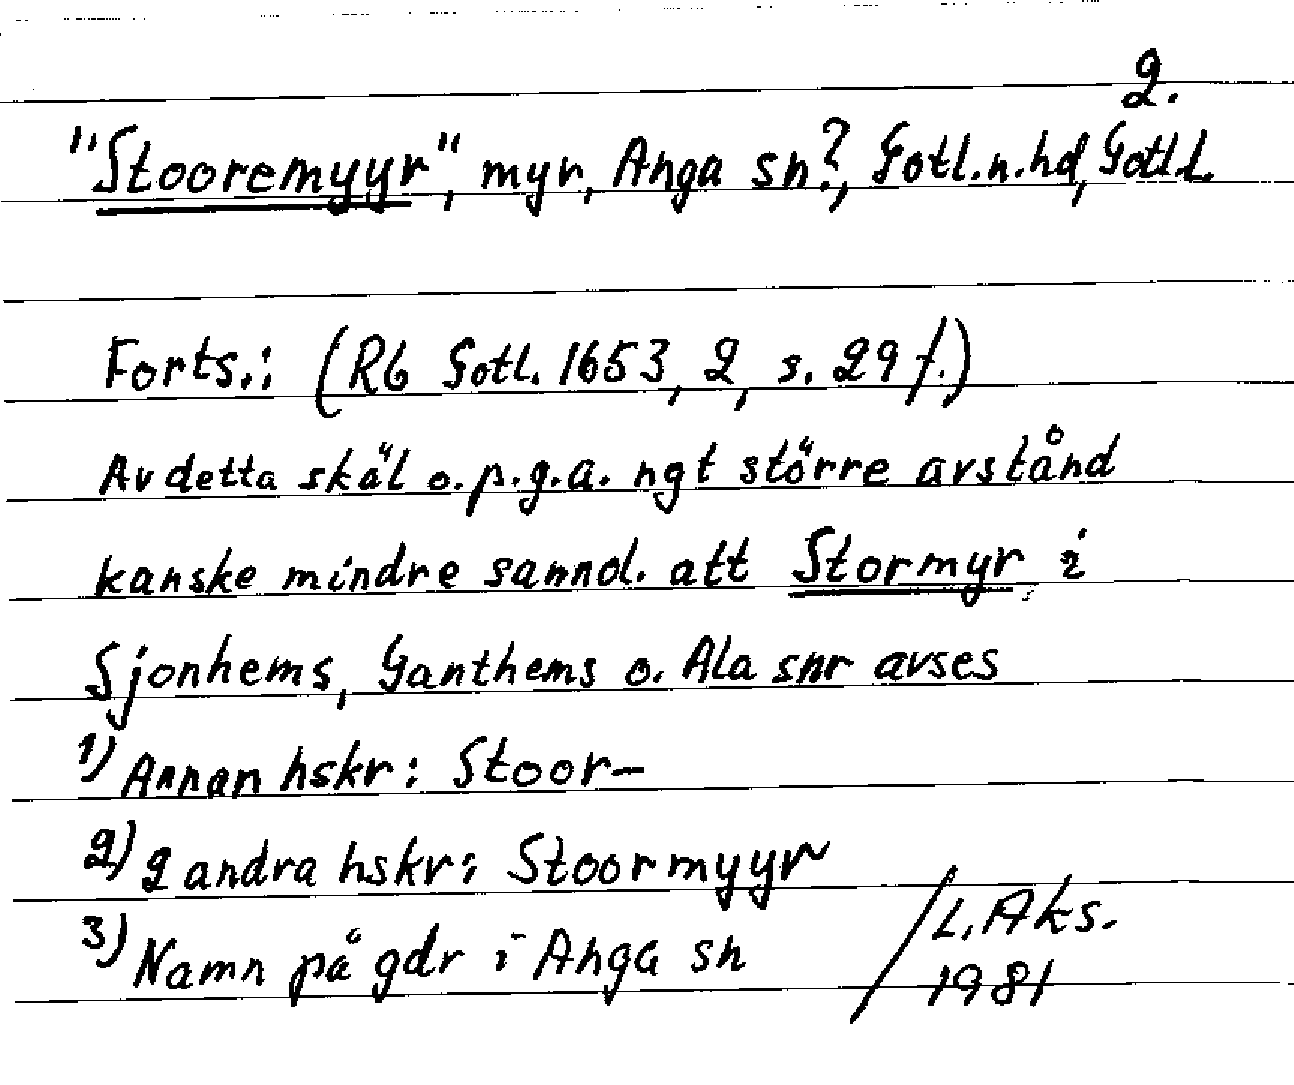 2.
"Stooremyyr", myr, Anga sn?, Gotl.n.hd, Gotl.l.
Forts.: (Rb Gotl. 1653, 2, s. 29 f.)
Av detta skäl o. p.g.a. ngt större avstånd
kanske mindre sannol. att Stormyr i
Sjonhems, Ganthems o. Ala snr avses
1) Annan hskr: Stoor-
2) 2 andra hskr: Stoormyyr
3) Namn på gdr i Anga sn
/L. Aks.
1981